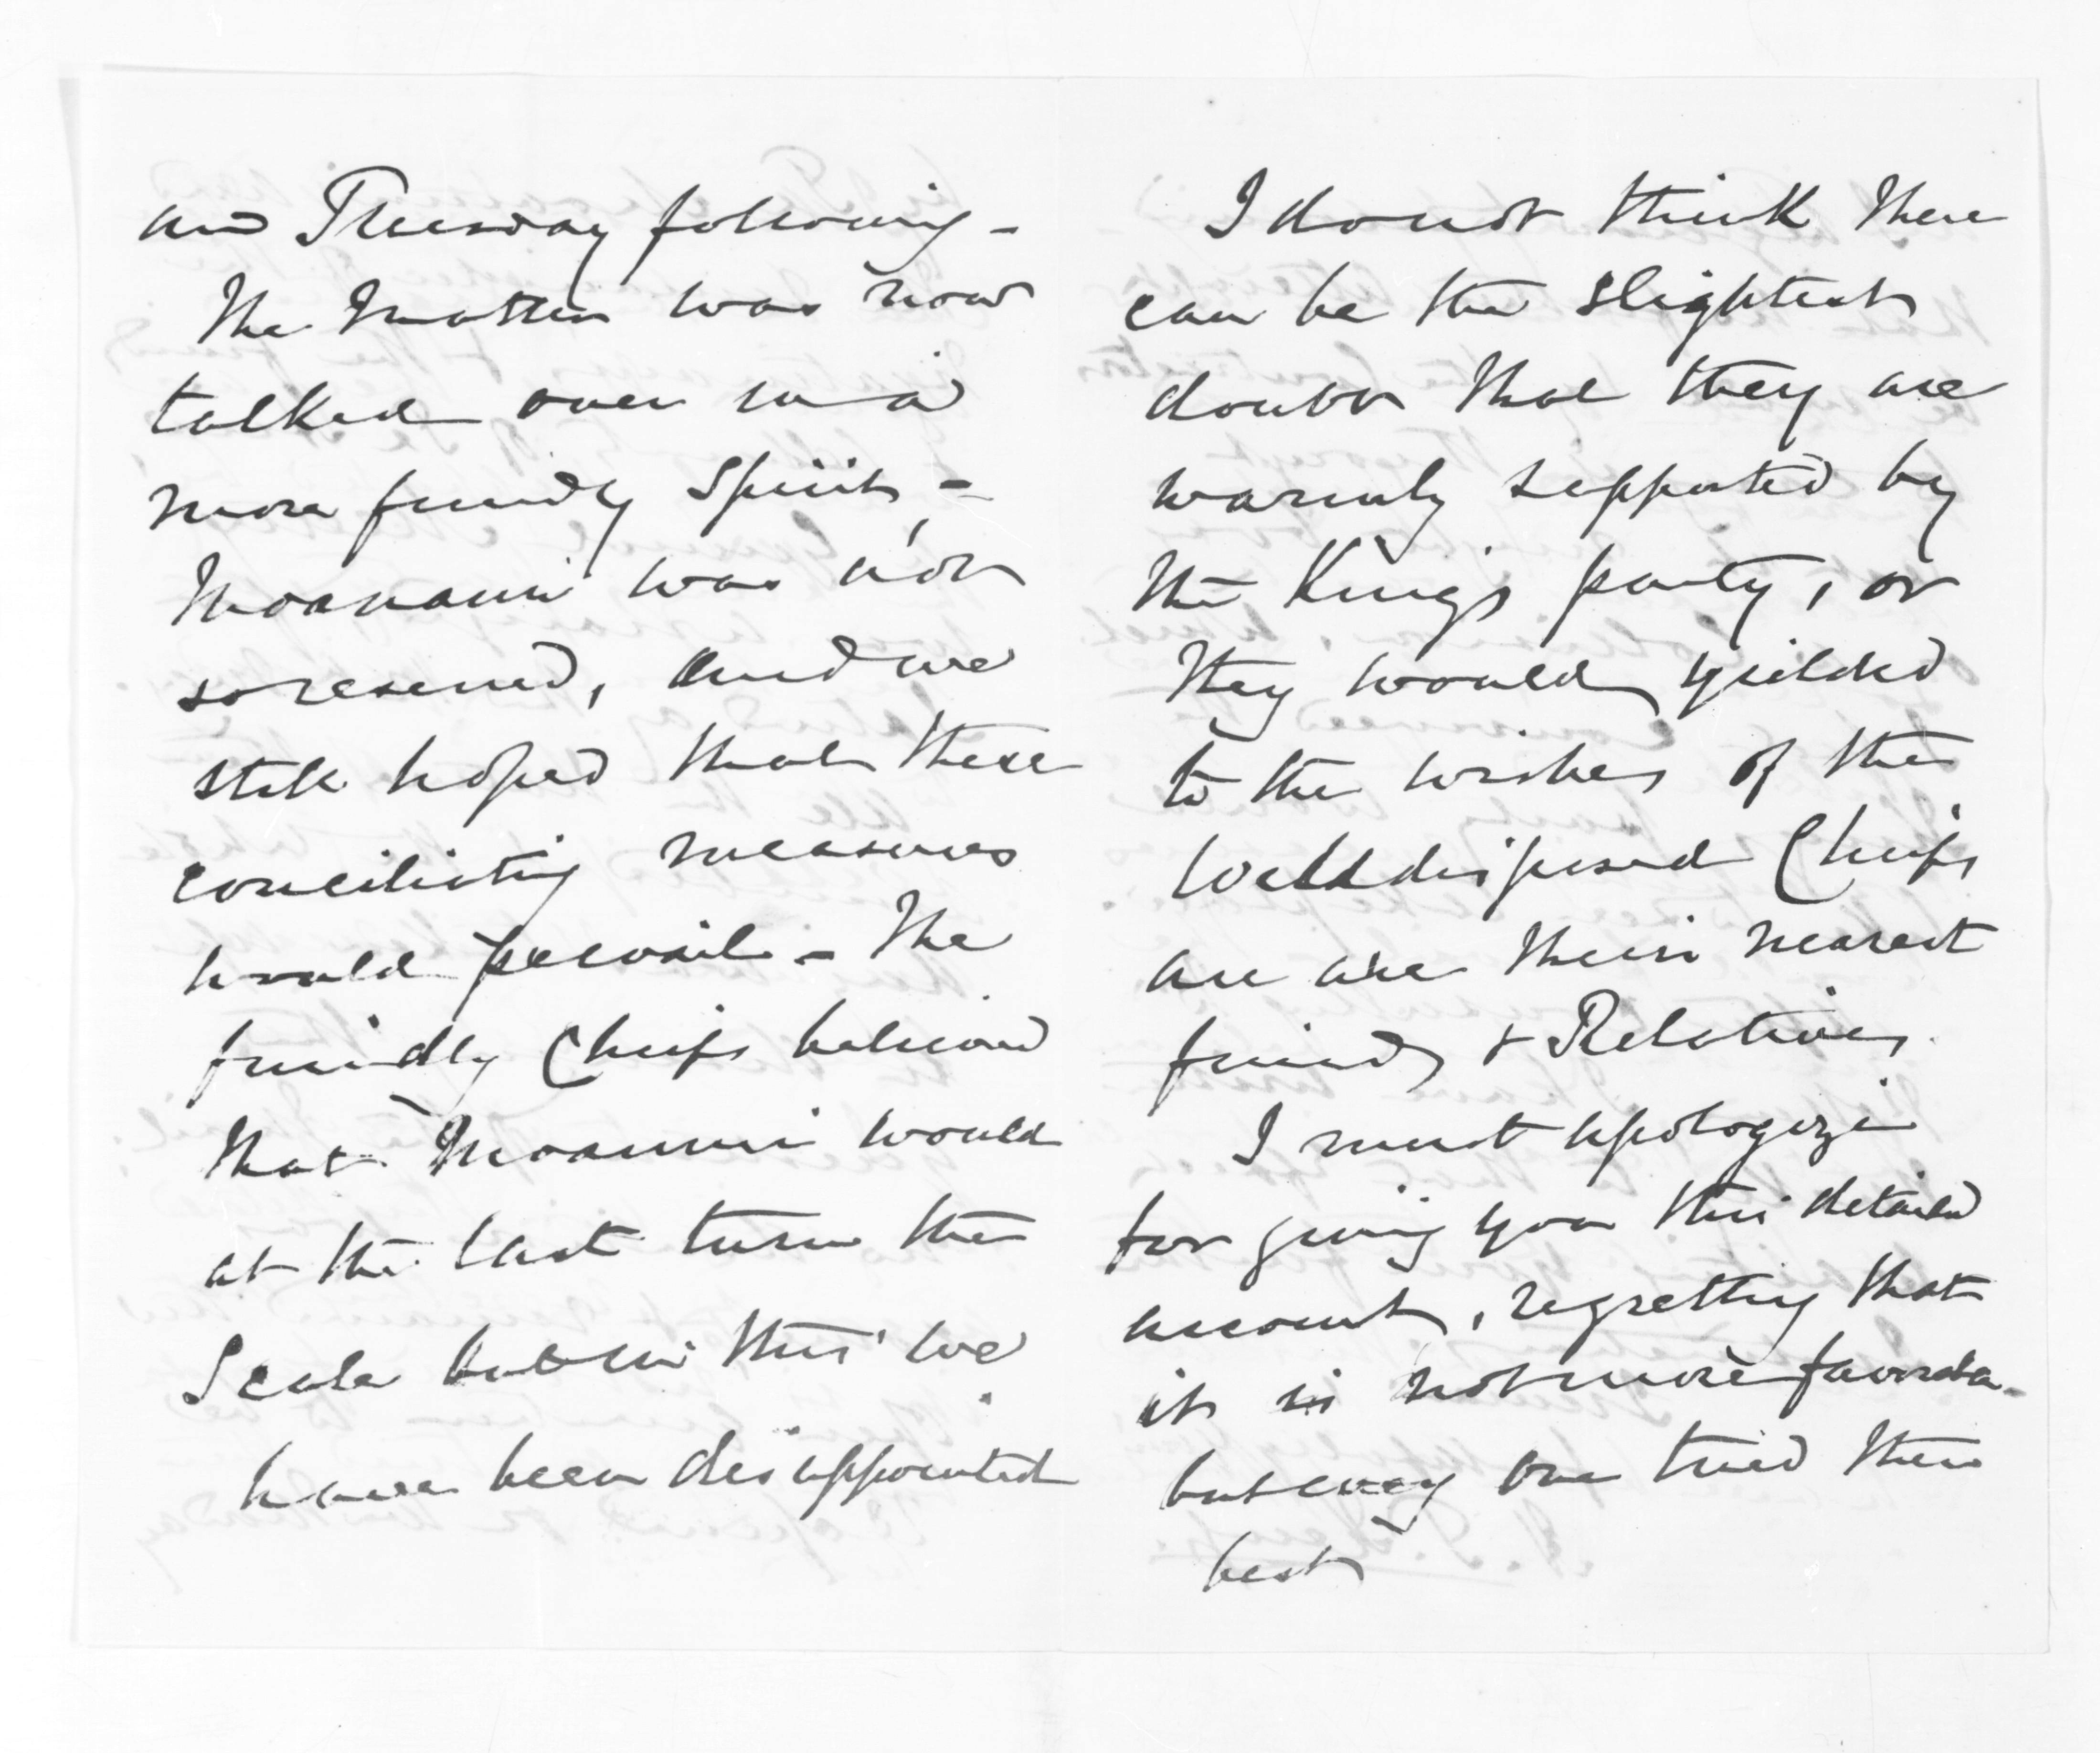 and Tuesday following -
The matter was now
talked over in a
more friendly spirit, -
Moanaui was not
so reserved, and we
still hoped that these
conciliating measures
would prevail - The
friendly Chiefs believed
that Moanui would
at the last turn the
Scale but in this we
have been disappointed
I do not think there
can be the slightest
doubt that they are
warmly supported by
the Kings party, or
they would yielded
to the wishes of the
well disposed Chiefs
are are their nearest
friends & Relatives.
I must apologize
for giving you this detailed
account, regretting that
it is not more favorda-
but every one tried their
best